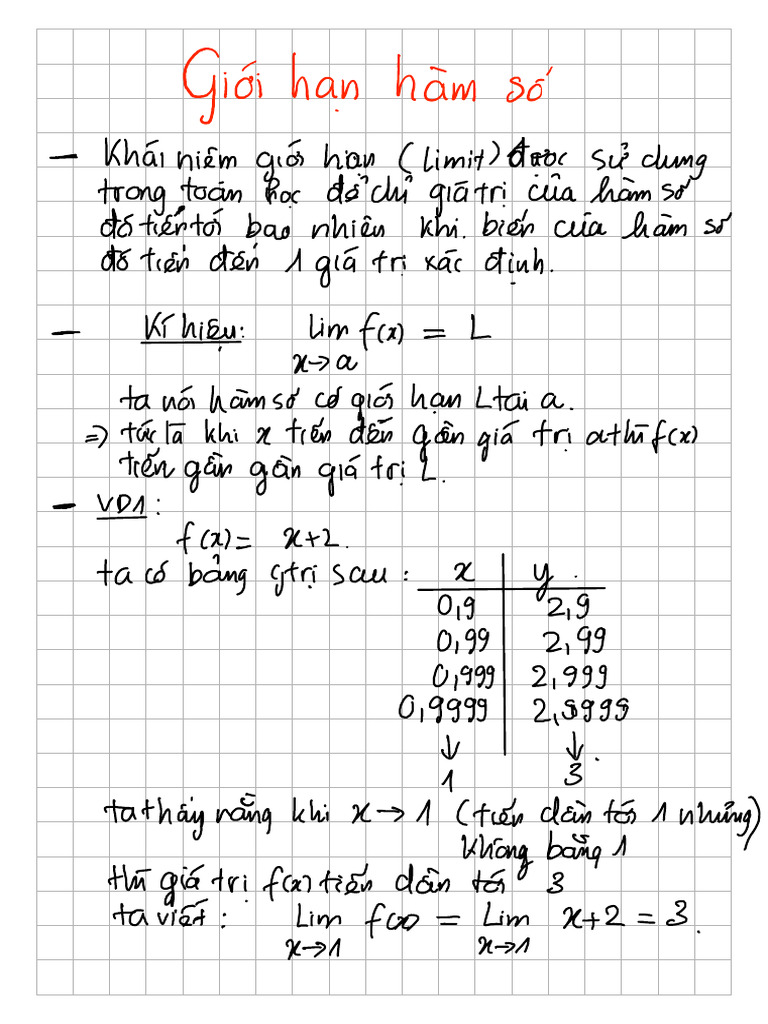 Giới hạn hàm số
— Khái niệm giới hạn (Limit) được sử dụng
trong toán học để chỉ giá trị của hàm số
đó tiến tới bao nhiên khi biến của hàm số
đó tiến đến 1 giá trị xác định.
— Kí hiệu: lim f(x) = L
x→a
ta nói hàm số có giới hạn L tại a.
=> tức là khi x tiến đến gần giá trị a thì f(x)
tiến gần gần giá trị L.
— VD1:
f(x) = x+2.
ta có bảng gtrị sau: x y.
0,9 2,9
0,99 2,99
0,999 2,999
0,9999 2,9999
↓ ↓.
1 3
ta thấy rằng khi x→1 (tiến dần tới 1 nhưng)
không bằng 1
thì giá trị f(x) tiến dần tới 3
ta viết: Lim f(x) = Lim x+2 = 3.
x→1 x→1